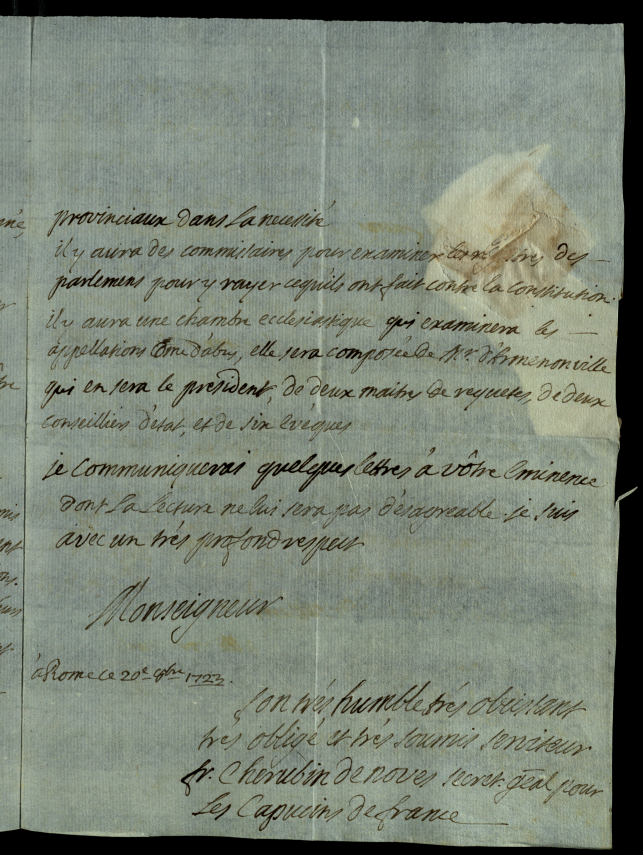 provinciaux dans la necessité
il y aura des commissaires pour examiner les des
parlemens pour y rayer ce qu'ils ont fait contre la Constitution.
il y aura une chambre ecclesiastique qui examinera les
appellations d'abus, elle sera composée de Mr. d'Armenonville
qui en sera le president, de deux maitres de requetes, de deux
conseillers d'etat, et de six evéques
je communiquerai quelques lettres à vôtre Eminence
dont la lecture ne lui sera pas désagreable. je suis
avec un trés profond respect
Monseigneur
à Rome ce 20e 8bre 1722.
Son trés humble trés obeissant
trés obligé et trés soumis serviteur
fr. Cherubin de noves secret. gñal pour
les Capucins de france